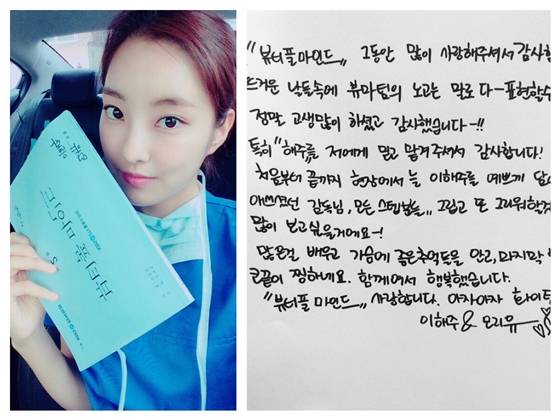 뷰티풀 마인드
"뷰티풀마인드,, 그동안 많이 사랑해주셔서 감사합
뜨거운 날들속에 뷰마팀의 노고는 말로 다-표현할수
정말 고생많이 하셨고 감사했습니다-!!
특히 "해주를 저에게 믿고 맡겨주셔서 감사합니다!
처음부터 끝까지 현장에서 늘 이해주를 예쁘게
애쓰셨던 감독님, 모든 스텝분들,, 그립고 또 그리워하게
많이 보고싶을거에요-!
많은걸 배우고 가슴에 좋은추억들을 안고, 마지막
코끝이 찡하네요. 함께여서 행복했습니다.
"뷰터플 마인드,, 사랑합니다. 아자아자 화이팅
이해주 & 오리유